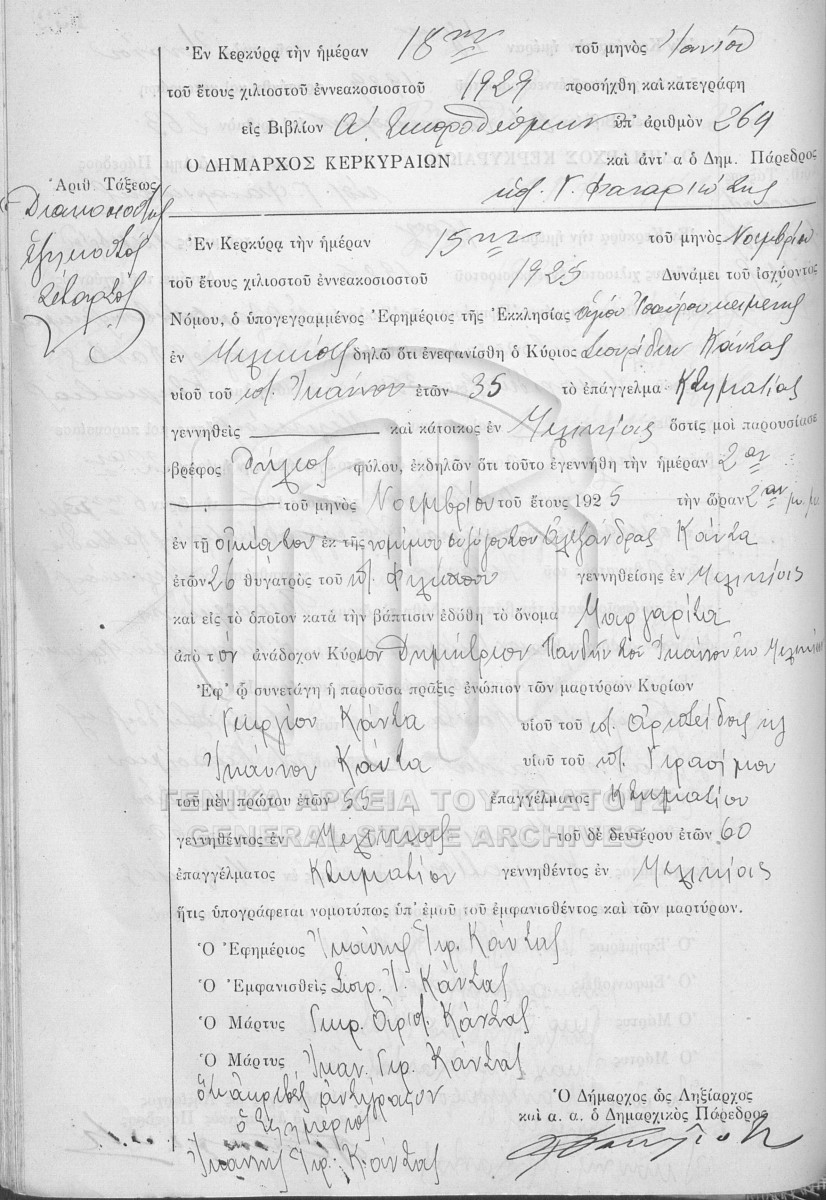 Ἐν Κερκύρᾳ τὴν ἡμέραν 18ην τοῦ μηνὸς Ἰουνίου
τοῦ ἔτους χιλιοστοῦ ἐννεακοσιοστοῦ 1929 προσήχθη καὶ κατεγράφη
εἰς Βιβλίον Α΄ ὑπ' ἀριθμὸν 264
Ο ΔΗΜΑΡΧΟΣ ΚΕΡΚΥΡΑΙΩΝ καὶ ἀντ' α ὁ Δημ. Πάρεδρος
Ἀριθ Τάξεως
Διακοσιοστὸς
ἑξηκοστὸς
τέταρτος
Ἐν Κερκύρᾳ τὴν ἡμέραν 15ην τοῦ μηνὸς Νοεμβρίου
τοῦ ἔτους χιλιοστοῦ ἐννεακοσιοστοῦ 1925 Δυνάμει τοῦ ἰσχύοντος
Νόμου, ὁ ὑπογεγραμμένος Ἐφημέριος τῆς Ἐκκλησίας
ἐν δηλῶ ὅτι ἐνεφανίσθη ὁ Κύριος Σπυρίδων Κάντας
υἱοῦ τοῦ ποτ. Ἰωάννου ἐτῶν 35 τὸ ἐπάγγελμα Κτηματίας
γεννηθεὶς καὶ κάτοικος ἐν ὅστις μοὶ παρουσίασε
βρέφος θήλεος φύλου, ἐκδηλῶν ὅτι τοῦτο ἐγεννήθη τὴν ἡμέραν 2αν
τοῦ μηνὸς Νοεμβρίου τοῦ ἔτους 1925 τὴν ὥραν 2αν μ.μ.
ἐν τῇ οἰκίᾳ του ἐκ τῆς νομίμου συζύγου του Ἀλεξάνδρας Κάντα
ἐτῶν 26 θυγατρὸς τοῦ ποτ. Φιλίππου γεννηθείσης ἐν
καὶ εἰς τὸ ὁποῖον κατὰ τὴν βάπτισιν ἐδόθη τὸ ὄνομα Μαργαρίτα
ἀπὸ τὸν ἀνάδοχον Κύριον Δημήτριον Πανδῆν τοῦ Ἰωάννου ἐκ
Ἐφ' ᾧ συνετάγη ἡ παροῦσα πρᾶξις ἐνώπιον τῶν μαρτύρων Κυρίων
Γεώργιον Κάντα υἱοῦ τοῦ ποτ. Ἀριστείδης κλ
Ἰωάννου Κάντα υἱοῦ τοῦ ποτ. Γερασίμου
τοῦ μὲν πρώτου ἐτῶν 55 ἐπαγγέλματος Κτηματίου
ΓΕΝΙΚΑ ΑΡΧΕΙΑ ΤΟΥ ΚΡΑΤΟΥΣ
GENERAL STATE ARCHIVES
γεννηθέντος ἐν τοῦ δὲ δευτέρου ἐτῶν 60
ἐπαγγέλματος Κτηματίου γεννηθέντος ἐν
ἥτις ὑπογράφεται νομοτύπως ὑπ' ἐμοῦ τοῦ ἐμφανισθέντος καὶ τῶν μαρτύρων.
Ὁ Ἐφημέριος Ἰωάννης Γερ. Κάντας
Ὁ Ἐμφανισθεὶς Σπυρ. Ἰ. Κάντας
Ὁ Μάρτυς Γεωρ. Ἀριστ. Κάντας
Ὁ Μάρτυς Ἰωαν. Γερ. Κάντας
ἀκριβὲς ἀντίγραφον
ὁ Ἐφημέριος
Ἰωάννης Γερ. Κάντας
Ὁ Δήμαρχος ὡς Ληξίαρχος
καὶ α. α. ὁ Δημαρχικὸς Πάρεδρος